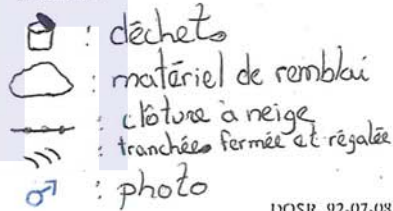 : déchets
: matériel de remblai
: clôture à neige
: tranchées fermée et régalée
: photo
DOSR 92-07-08